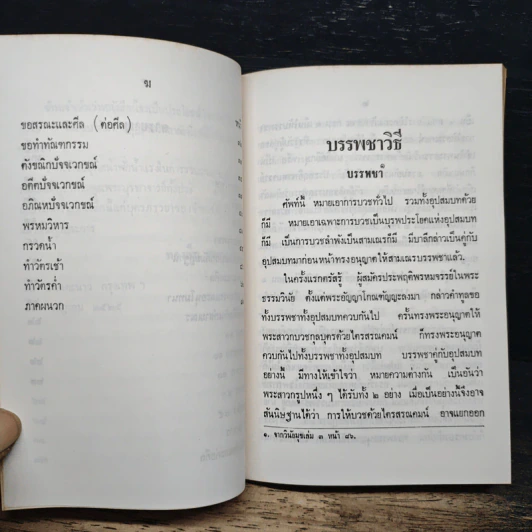 ฆ
ขอสรณะและศีล (ต่อศีล)
ขอทำทัณฑกรรม
ตังขณิกปัจจเวกขณ์
อดีตปัจจเวกขณ์
อภิณหปัจจเวกขณ์
พรหมวิหาร
กรวดน้ำ
ทำวัตรเช้า
ทำวัตรค่ำ
ภาคผนวก
บรรพชาวิธี
บรรพชา๑
ศัพท์นี้ หมายเอาการบวชทั่วไป รวมทั้งอุปสมบทด้วย
ก็มี หมายเอาเฉพาะการบวชเป็นบุรพประโยคแห่งอุปสมบท
ก็มี เป็นการบวชลำพังเป็นสามเณรก็มี มีบาลีกล่าวเป็นคู่กับ
อุปสมบทมาก่อนหน้าทรงอนุญาตให้สามเณรบรรพชาแล้ว.
ในครั้งแรกตรัสรู้ ผู้สมัครประพฤติพรหมจรรย์ในพระ
ธรรมวินัย ตั้งแต่พระอัญญาโกณฑัญญะลงมา กล่าวคำทูลขอ
ทั้งบรรพชาทั้งอุปสมบทควบกันไป ครั้นทรงพระอนุญาตให้
พระสาวกบวชกุลบุตรด้วยไตรสรณคมน์ ก็ทรงพระอนุญาต
ควบกันไปทั้งบรรพชาทั้งอุปสมบท บรรพชาคู่กับอุปสมบท
อย่างนี้ มีทางให้เข้าใจว่า หมายความต่างกัน เป็นอันว่า
พระสาวกรูปหนึ่ง ๆ ได้รับทั้ง ๒ อย่าง เมื่อเป็นอย่างนี้จึงอาจ
สันนิษฐานได้ว่า การให้บวชด้วยไตรสรณคมน์ อาจแยกออก
๑. จากวินัยมุขเล่ม ๓ หน้า ๘๖.